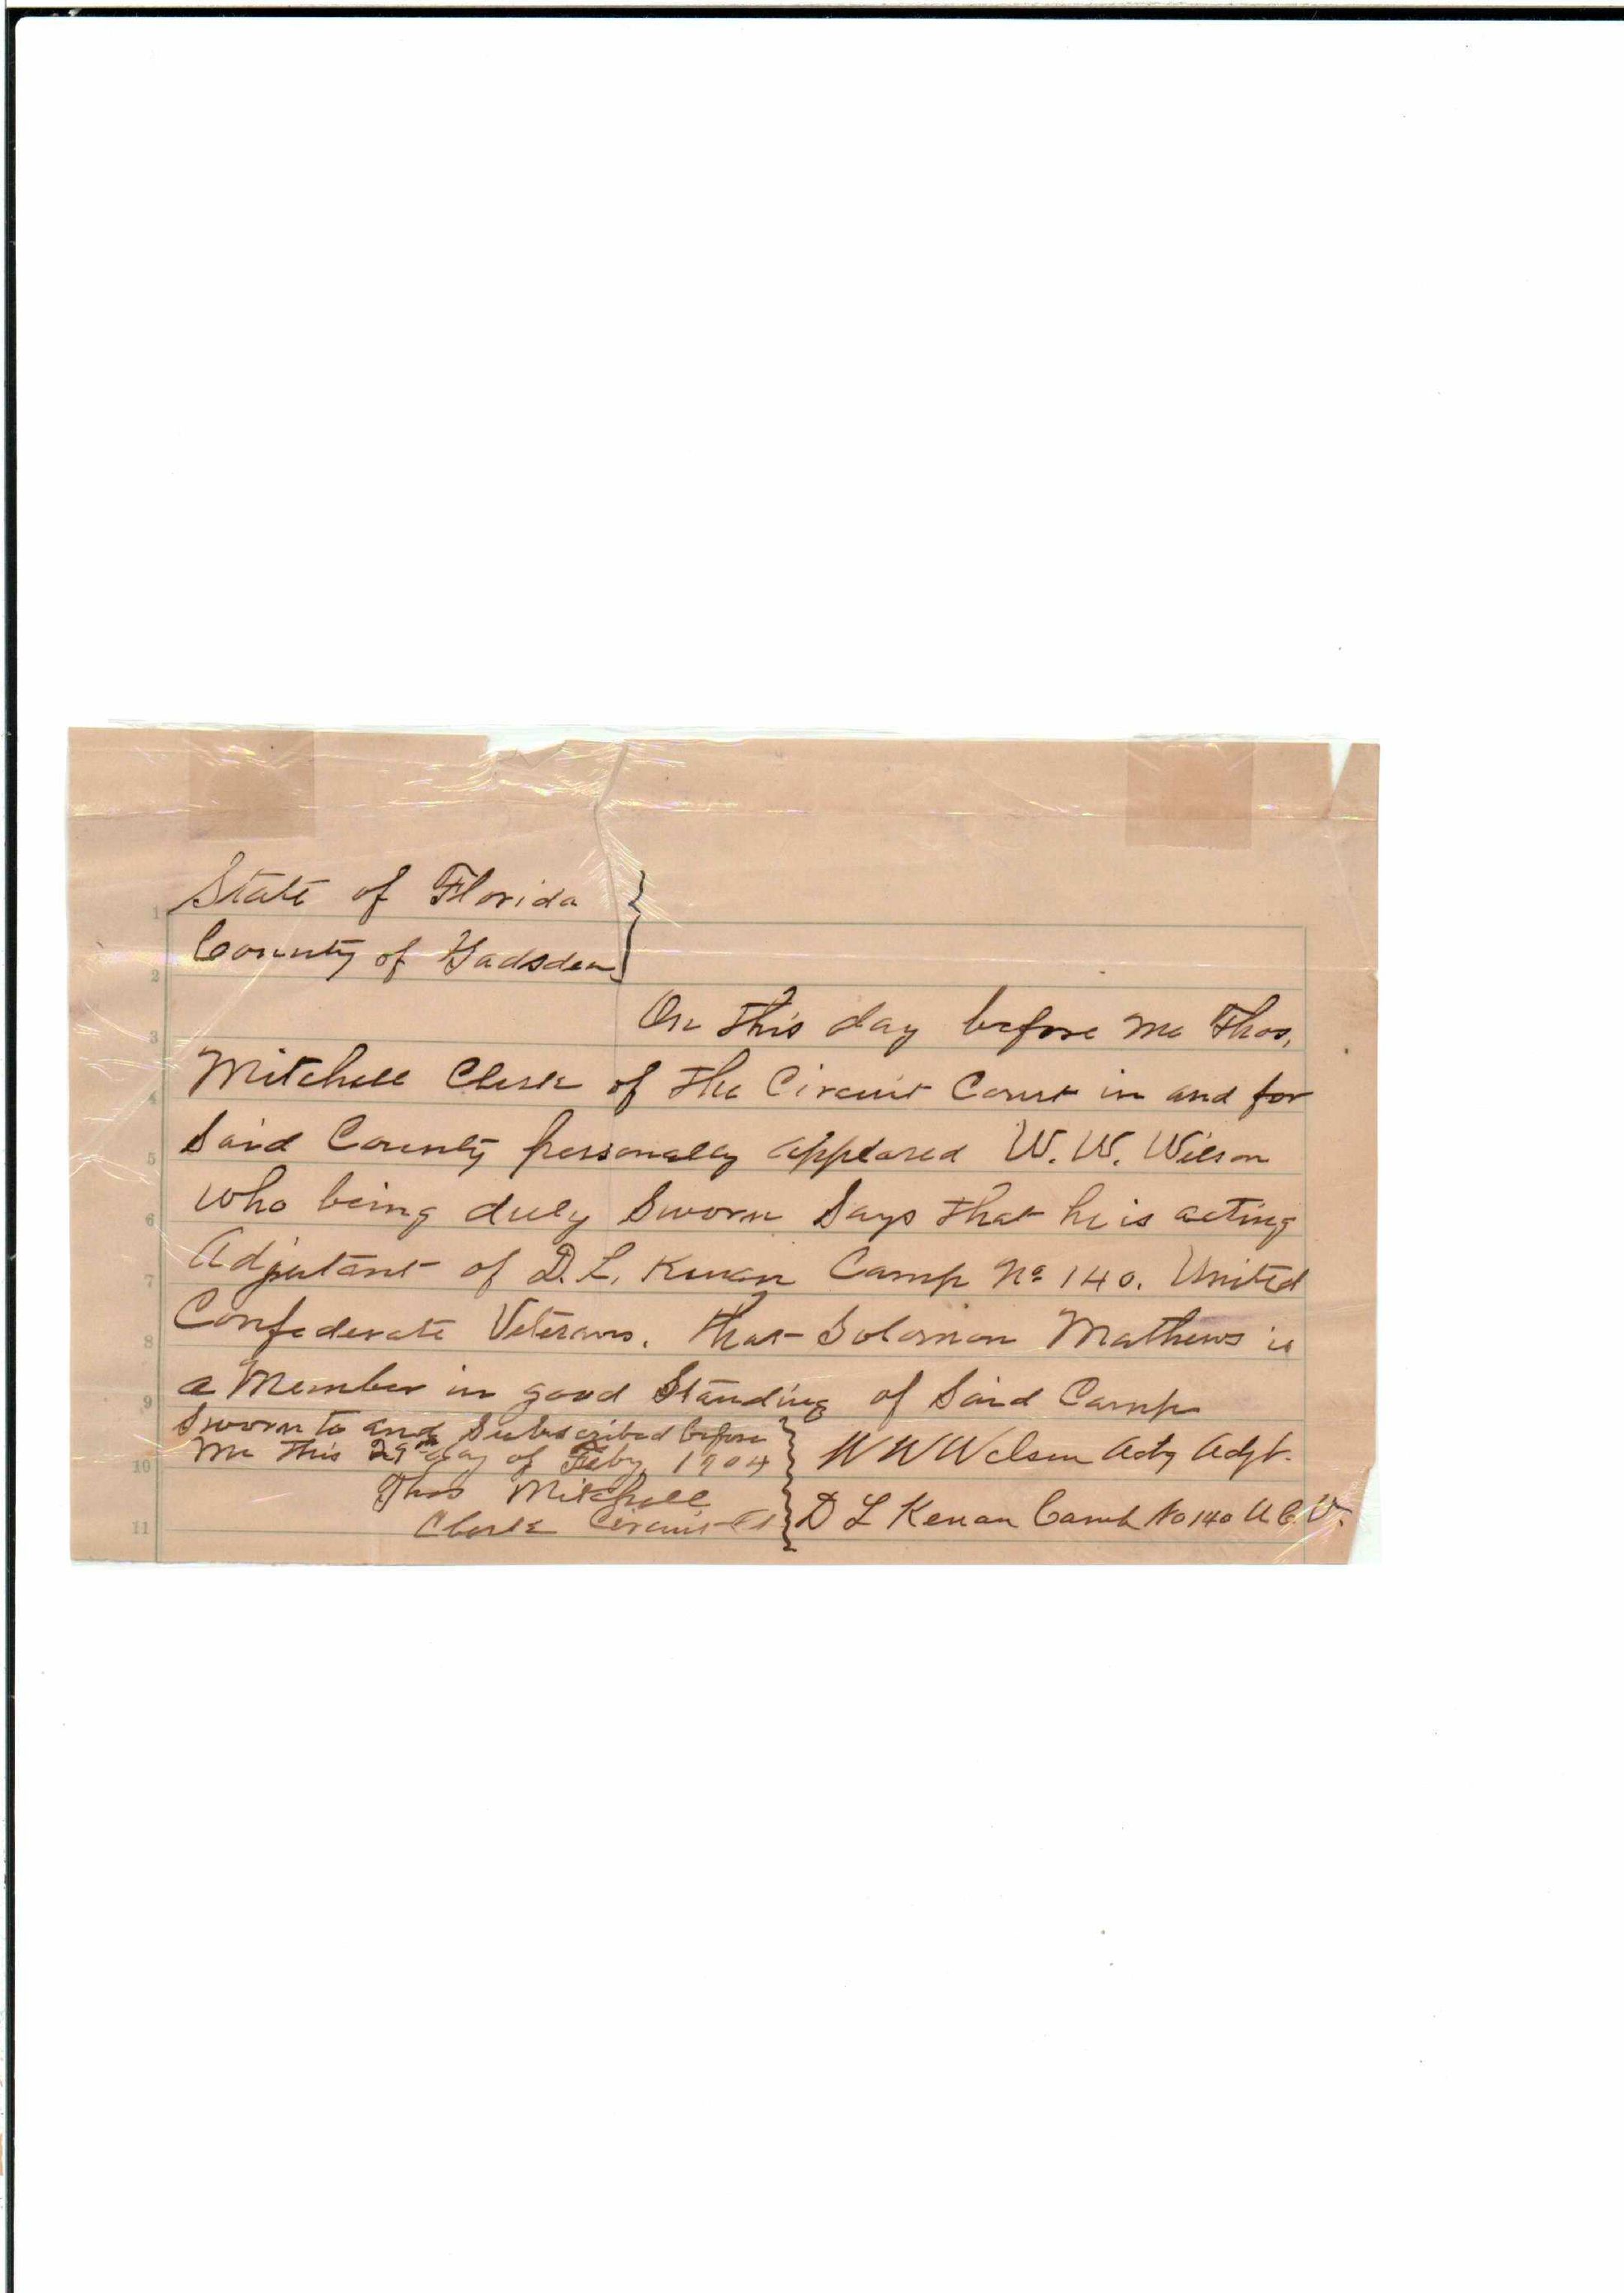 State of Florida }
County of Gadsden }
On this day before me Thos,
Mitchell Clerk of the Circuit Court in and for
Said County personally appeared W. W. Wilson
who being duly Sworn Says that he is acting
Adjutant of D. L. Kenan Camp No 140. United
Confederate Veterans. that Solomon Mathews is
a Member in good Standing of Said Camp
Sworn to and Subscribed before
me this 29th day of Feby, 1904
W W Wilson Actg Adjt.
Thos Mitchell
Clerk Circuit Ct
D L Kenan Camp No 140 U.C.V.
1
2
3
4
5
6
7
8
9
10
11